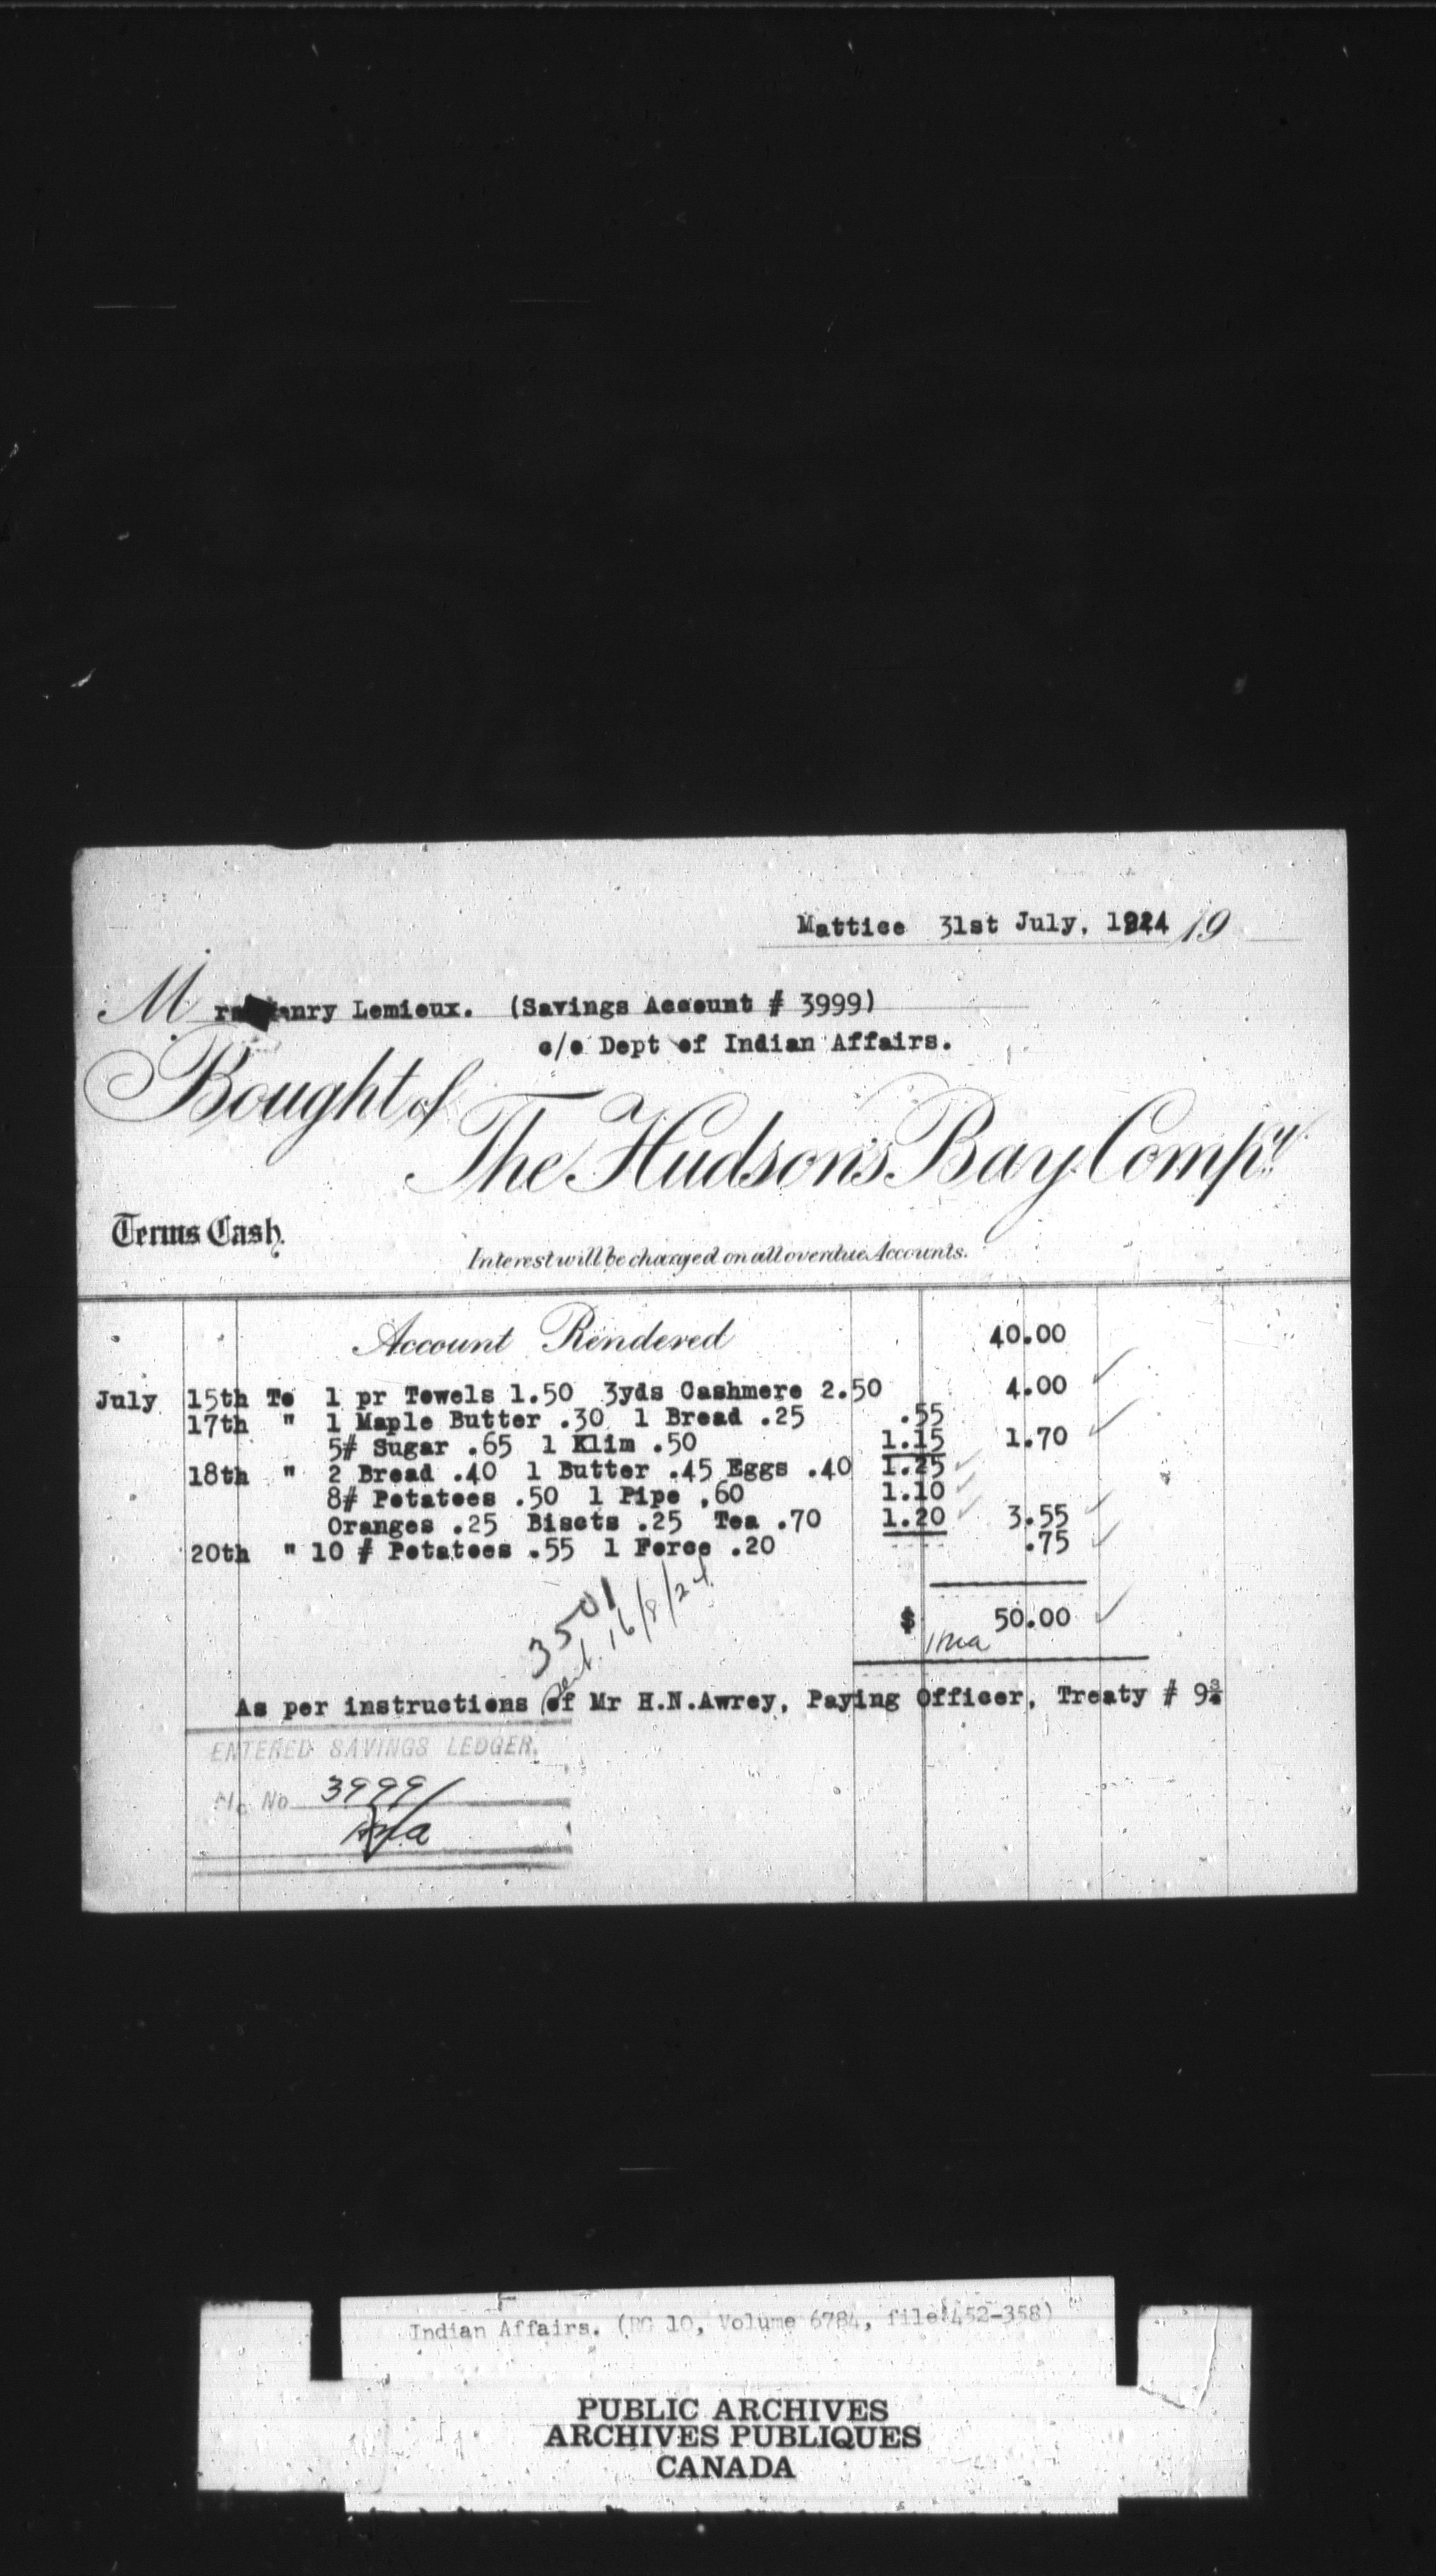 Mattice 31st July, 1924 19
Mrs Henry Lemieux. (Savings Account # 3999)
c/o Dept of Indian Affairs.
Bought of
The Hudson's Bay Compy.
Terms Cash.
Interest will be charged on all overdue Accounts.
Account Rendered 40.00
July 15th To 1 pr Towels 1.50 3yds Cashmere 2.50 4.00
17th " 1 Maple Butter .30 1 Bread .25 .55
5# Sugar .65 1 Klim .50 1.15 1.70
18th " 2 Bread .40 1 Butter .45 Eggs .40 1.25
8# Potatoes .50 1 Pipe .60 1.10
Oranges .25 Biscts .25 Tea .70 1.20 3.55
20th " 10 # Potatoes .55 1 Force .20 .75
3501
16/8/24
$ 50.00
As per instructions of Mr H.N.Awrey, Paying Officer, Treaty # 9¾
ENTERED SAVINGS LEDGER.
A/c No 3999
Indian Affairs. (RG 10, Volume 6784, file 452-358)
PUBLIC ARCHIVES
ARCHIVES PUBLIQUES
CANADA